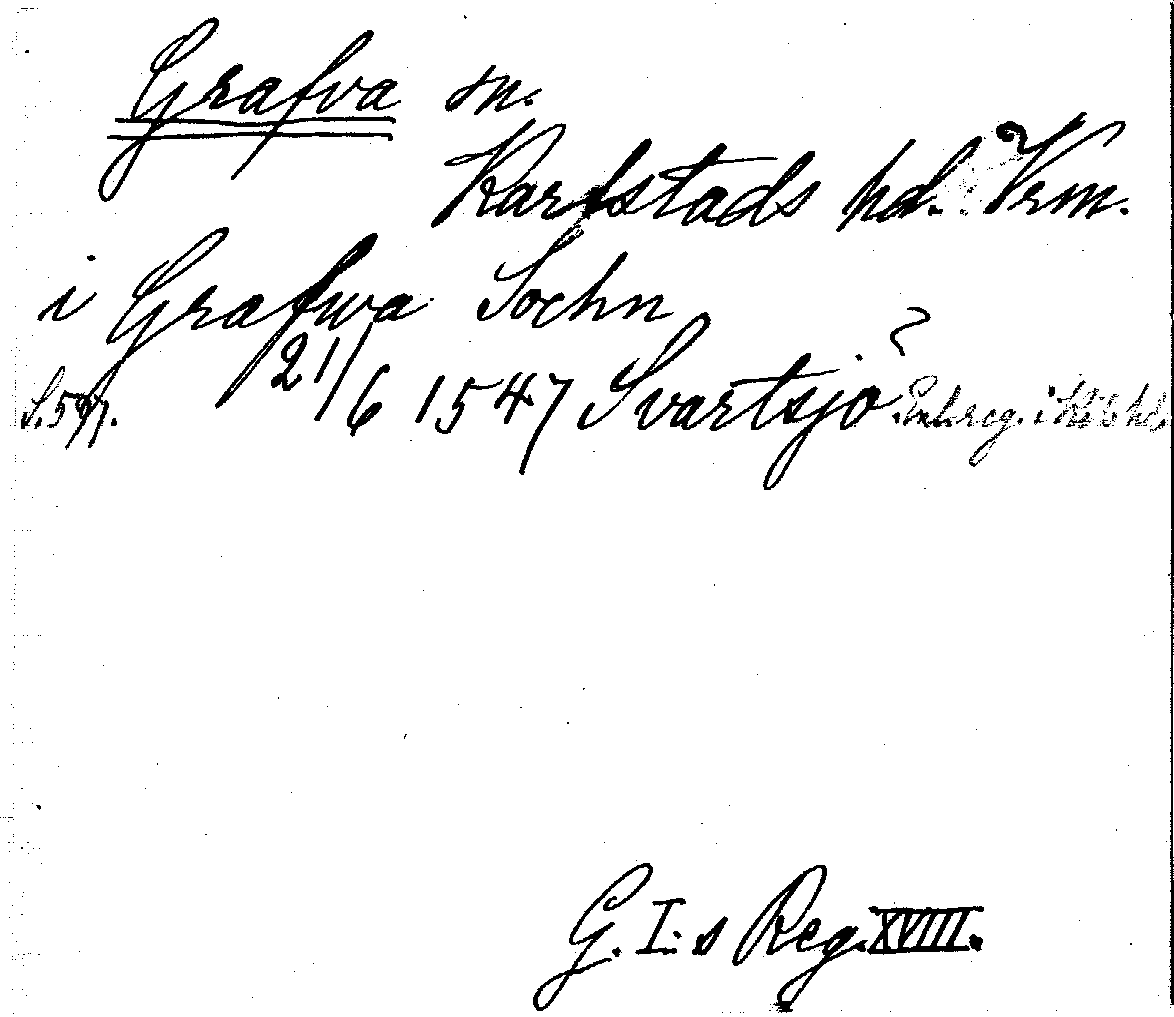 Grafva sn.
Karlstads hd. Vrm.
i Grafwa Sochn
S. 597. 21/6 1547 Svartsjö ?
G. I:s Reg. XVIII.